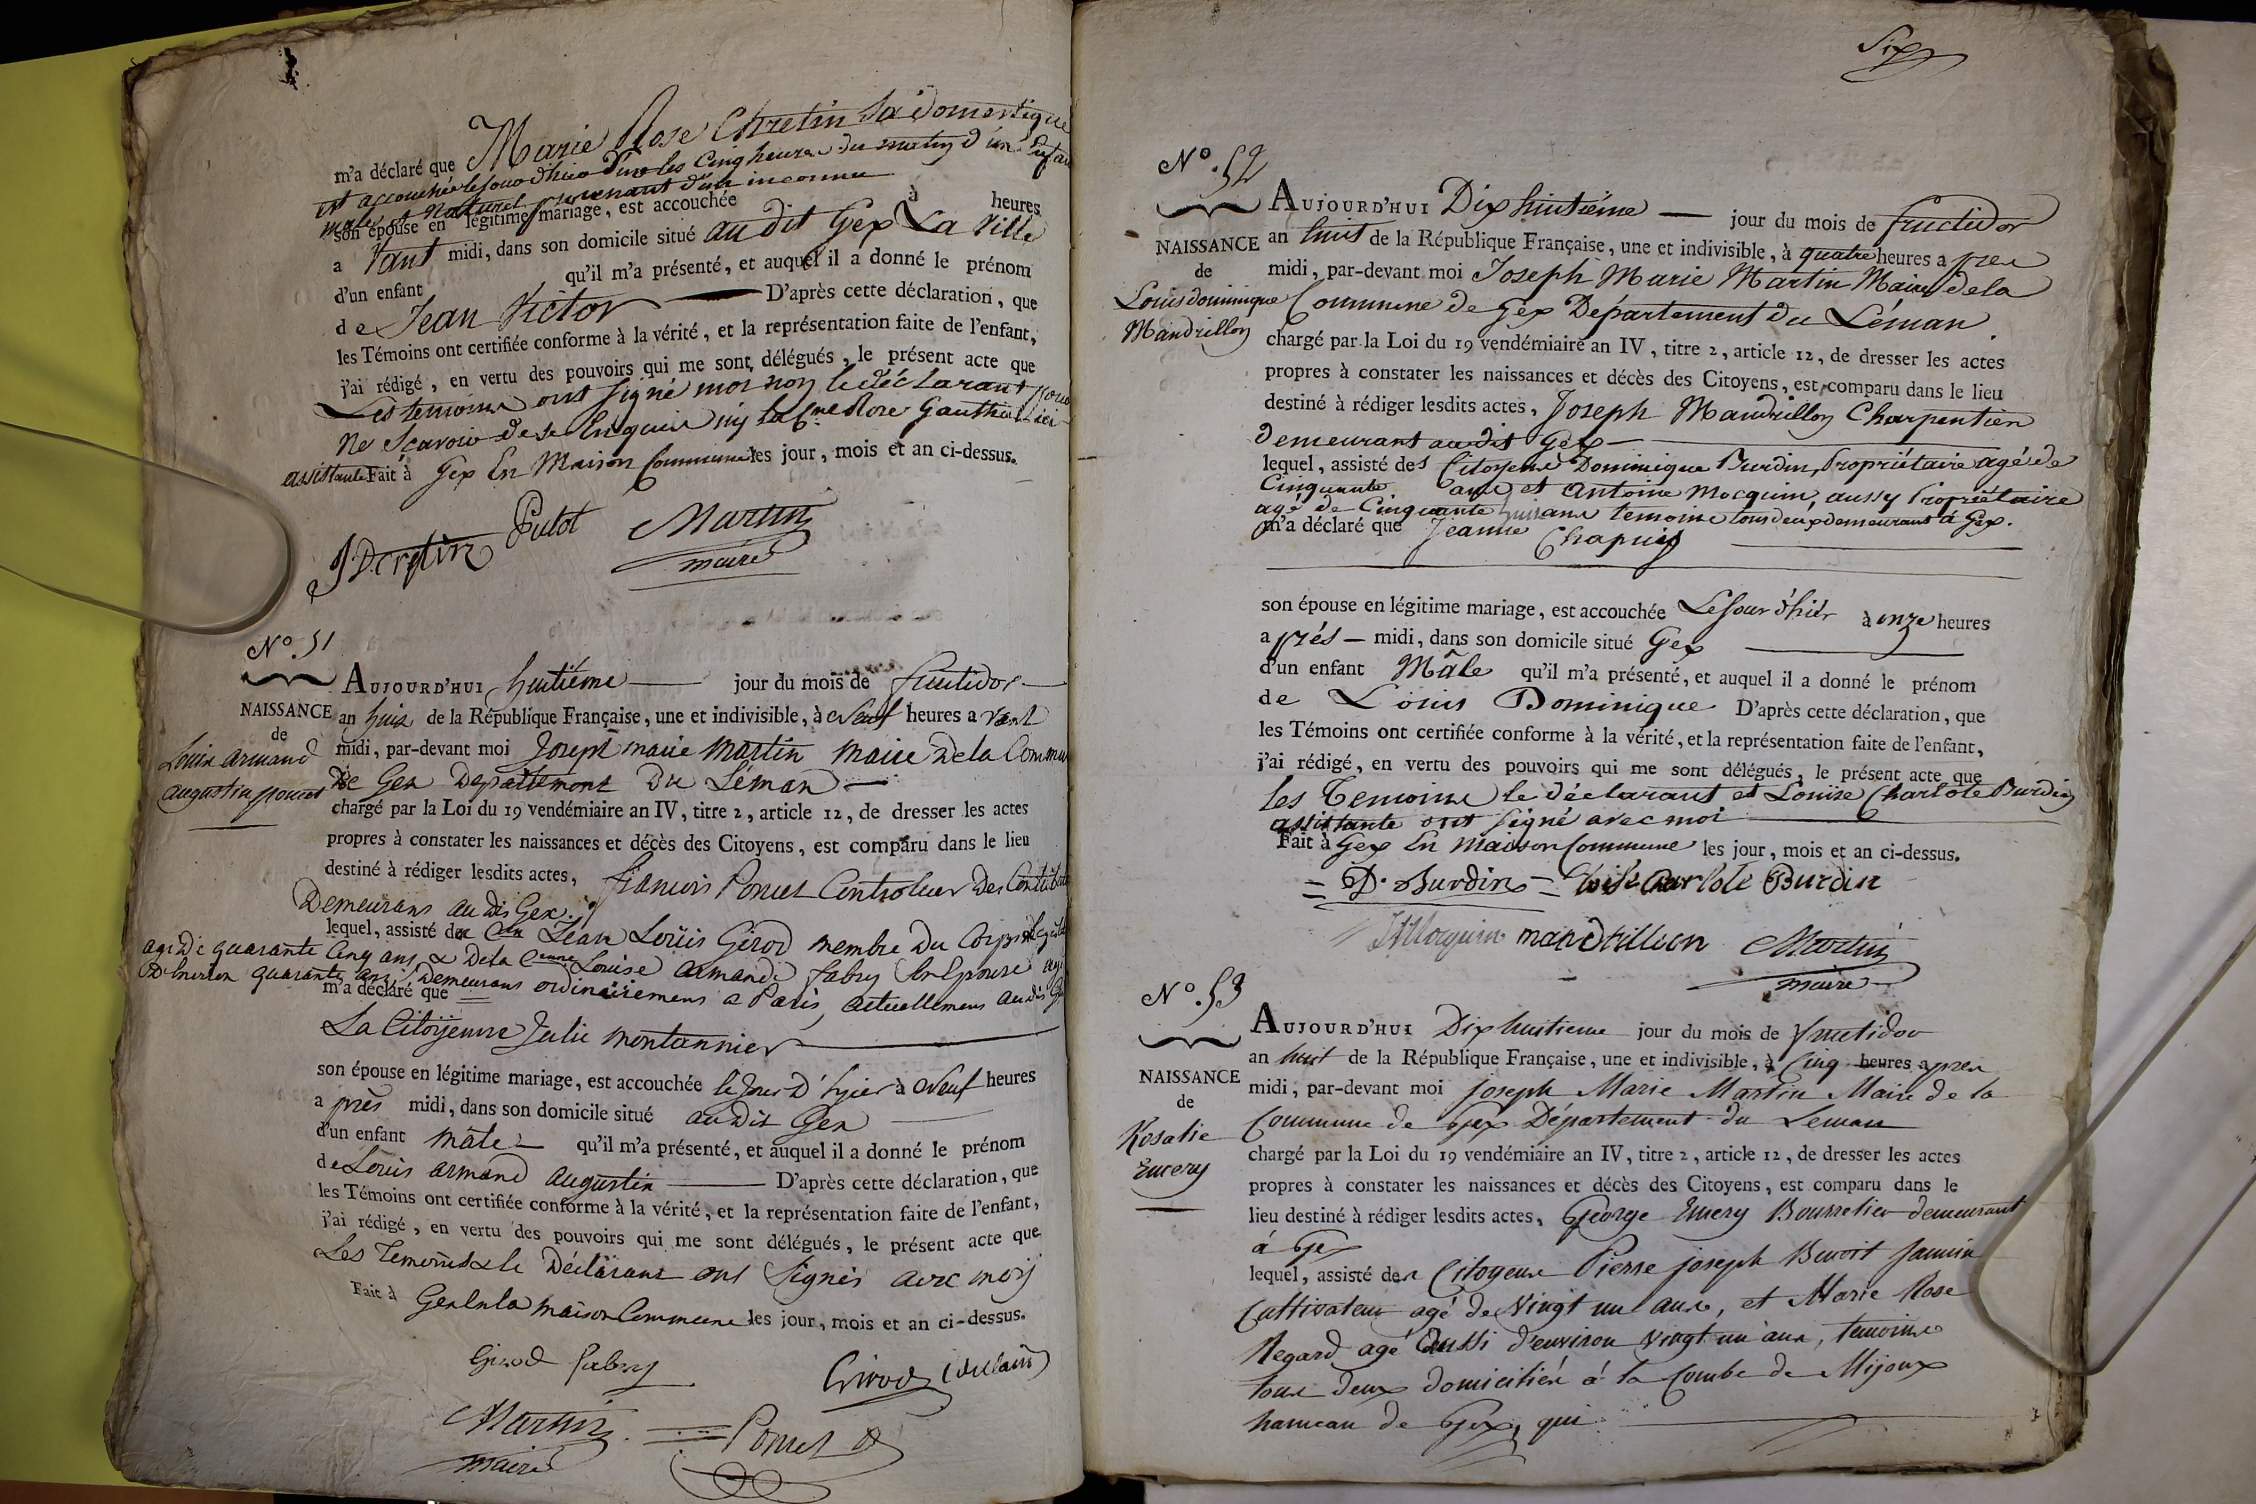 m'a déclaré que Marie Rose Chretin sa domestique
est accouchée le jour d'hier dans les Cinq heures du matin d'un Enfant
male et naturel provenant d'un inconnu
son épouse en légitime mariage, est accouchée à heures
a Vant midi, dans son domicile situé audit Gex La Ville
d'un enfant qu'il m'a présenté, et auquel il a donné le prénom
de Jean Victor D'après cette déclaration, que
les Témoins ont certifiée conforme à la vérité, et la représentation faite de l'enfant,
j'ai rédigé, en vertu des pouvoirs qui me sont délégués, le présent acte que
Les temoins ont signé moi non le déclarant pour
Ne Scavoir de ce Enquis ny la Cne Rose Gauthier
assistante Fait à Gex En Maison Commune les jour, mois et an ci-dessus.
Putot Martin
maire
N°. 51
NAISSANCE
de
Louis armand
augustin poncet
AUJOURD'HUI huitiéme jour du mois de fructidor
an huit de la République Française, une et indivisible, à Neuf heures a vant
midi, par-devant moi Joseph marie Martin maire De la Commune
De Gex Departement Du Léman
chargé par la Loi du 19 vendémiaire an IV, titre 2, article 12, de dresser les actes
propres à constater les naissances et décès des Citoyens, est comparu dans le lieu
destiné à rédiger lesdits actes, francois Poncet Controleur Des Contributions
Demeurans au dit Gex.
lequel, assisté de Jean Loüis Girod membre Du Corps Legislatif
agé De quarante Cinq ans, & Dela Cenne Louise armande fabry Son Epouse agée
D'Environ quarante ans, Demeurans ordinairemens a Paris, actuellemens au dit Gex
m'a déclaré que
La Citoÿenne Julie montannier
son épouse en légitime mariage, est accouchée le Jour D'hyier à Neuf heures
a près midi, dans son domicile situé audit Gex
d'un enfant mâle qu'il m'a présenté, et auquel il a donné le prénom
de Louis armand augustin D'après cette déclaration, que
les Témoins ont certifiée conforme à la vérité, et la représentation faite de l'enfant,
j'ai rédigé, en vertu des pouvoirs qui me sont délégués, le présent acte que
Les Temoins & le Déclarant ont Signés avec moy
Fait à Gex En la maison Commune les jour, mois et an ci-dessus.
Girod fabry Girod
Martin Poncet
maire
Six
N°. 52
NAISSANCE
de
Louis dominique
Mandrillon
AUJOURD'HUI Dix huitiéme jour du mois de fructidor
an huit de la République Française, une et indivisible, à quatre heures a pres
midi, par-devant moi Joseph Marie Martin Maire de la
Commune de Gex Département du Léman
chargé par la Loi du 19 vendémiaire an IV, titre 2, article 12, de dresser les actes
propres à constater les naissances et décès des Citoyens, est comparu dans le lieu
destiné à rédiger lesdits actes, Joseph Mandrillon Charpentier
demeurant audit Gex
lequel, assisté des Citoyens Dominique Burdin, Propriétaire agé de
Cinquante ans et Antoine Mocquin, aussy Propriétaire
agé de Cinquante huit ans temoins tous deux demeurant á Gex.
m'a déclaré que Jeanne Chapuis
son épouse en légitime mariage, est accouchée Le Jour d'hiér à onze heures
a près midi, dans son domicile situé Gex
d'un enfant Mâle qu'il m'a présenté, et auquel il a donné le prénom
de Louis Dominique D'après cette déclaration, que
les Témoins ont certifiée conforme à la vérité, et la représentation faite de l'enfant,
j'ai rédigé, en vertu des pouvoirs qui me sont délégués, le présent acte que
les Temoins le déclarant et Louise Charlote Burdin
assistante ont signé avec moi
Fait à Gex En Maison Commune les jour, mois et an ci-dessus.
D. Burdin Charlote Burdin
Mocquin mandrillion Martin
maire
N°. 53
NAISSANCE
de
Rosalie
Emery
AUJOURD'HUI Dix huitieme jour du mois de fructidor
an huit de la République Française, une et indivisible, à Cinq heures a pres
midi, par-devant moi Joseph Marie Martin Maire de la
Commune de Gex Département du Leman
chargé par la Loi du 19 vendémiaire an IV, titre 2, article 12, de dresser les actes
propres à constater les naissances et décès des Citoyens, est comparu dans le
lieu destiné à rédiger lesdits actes, George Emery Bourrelier demeurant
á Gex
lequel, assisté des Citoyens Pierre joseph Benoit Janin
Cultivateur agé de Vingt un ans, et Marie Rose
Regard agé aussi d'environ vingt un ans, temoins
tous deux domiciliés á la Combe de Mijoux
hameau de Gex, qui